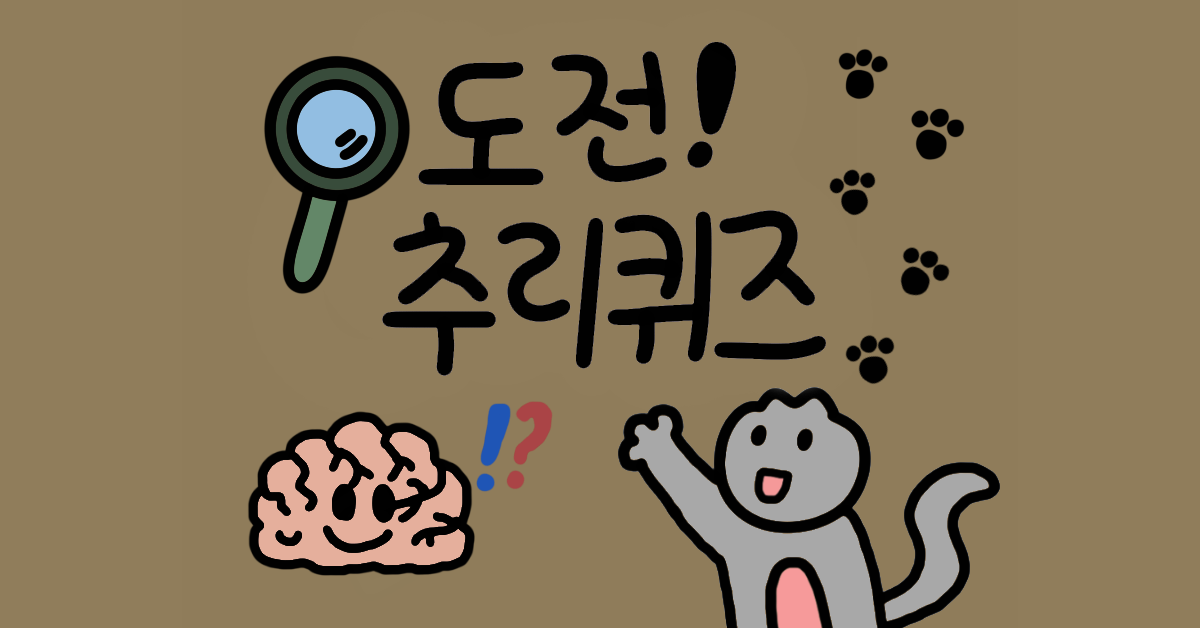 도전!
추리퀴즈
!?